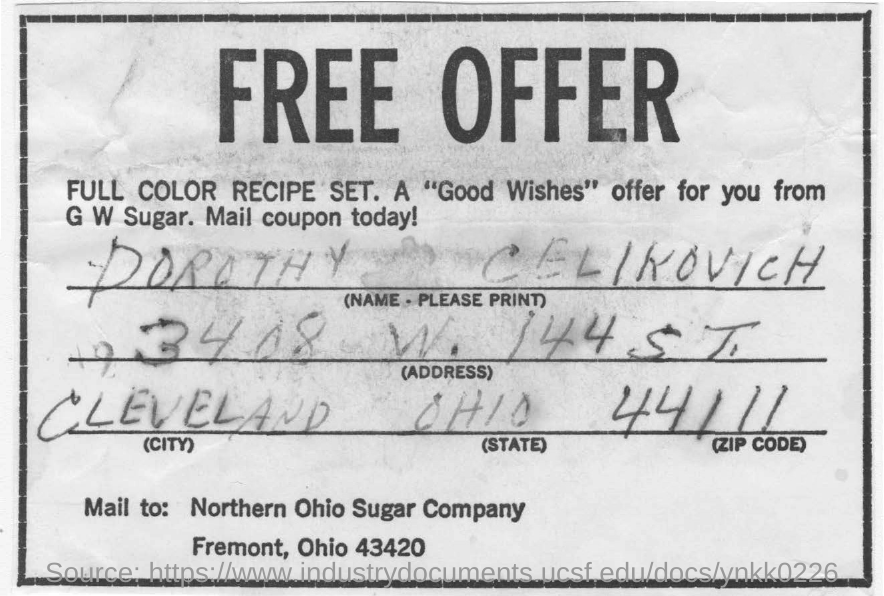 FREE OFFER
FULL COLOR RECIPE SET. A "Good Wishes" offer for you from
G W Sugar. Mail coupon today!
DOROTHY CELIKOVICH
(NAME - PLEASE PRINT)
3408 W. 144 ST.
(ADDRESS)
CLEVELAND OHIO 44111
(CITY) (STATE) (ZIP CODE)
Mail to: Northern Ohio Sugar Company
Fremont, Ohio 43420
Source: https://www.industrydocuments.ucsf.edu/docs/ynkk0226